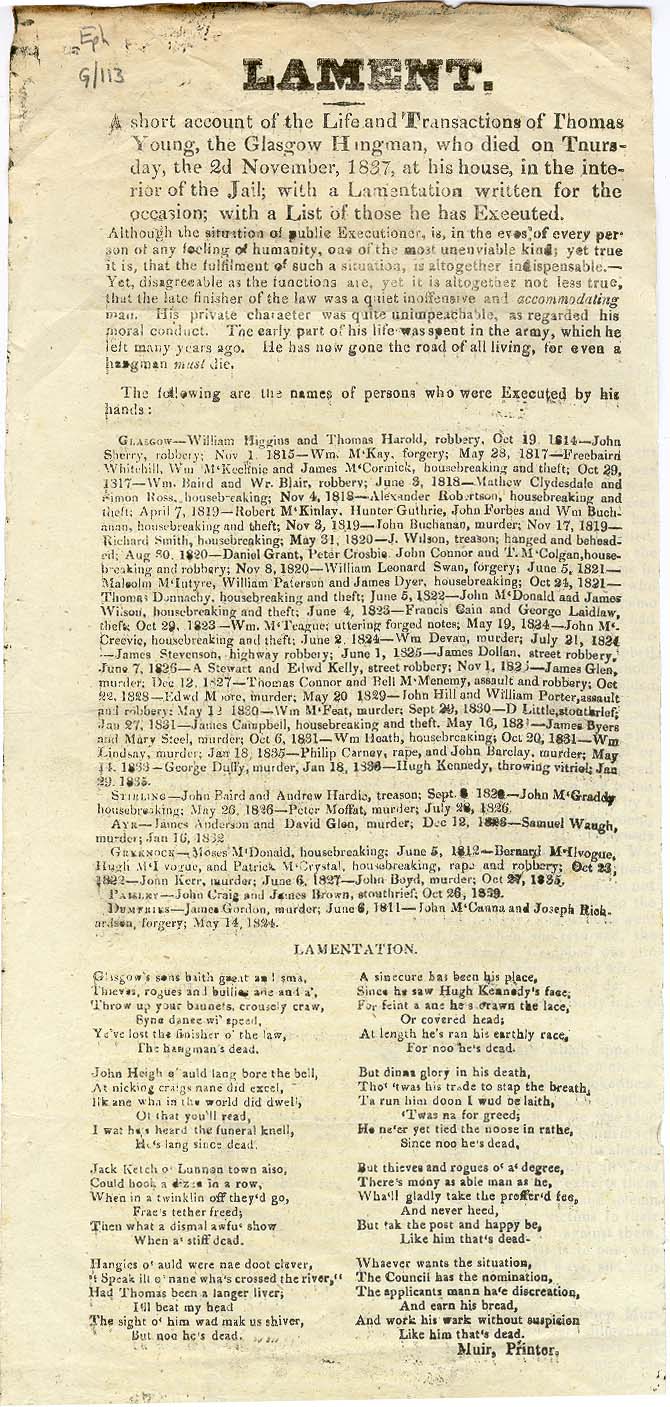 Eph
G/113
LAMENT.
A short account of the Life and Transactions of Thomas
Young, the Glasgow Hangman, who died on Tnurs-
day, the 2d November, 1837, at his house, in the inte-
rior of the Jail; with a Lamentation written for the
occasion; with a List of those he has Executed.
Although the situation of public Executioner, is, in the eyes, of every per-
son of any feeling of humanity, one of the most unenviable kind; yet true
it is, that the fulfilment of such a situation, is altogether indispensable.—
Yet, disagreeable as the functions are, yet it is altogether not less true,
that the late finisher of the law was a quiet inoffensive and accommodating
man. His private character was quite unimpeachable, as regarded his
moral conduct. The early part of his life was spent in the army, which he
left many years ago. He has now gone the road of all living, for even a
hangman must die.
The following are the names of persons who were Executed by his
hands:
GLASGOW—William Higgins and Thomas Harold, robbery, Oct 19, 1814—John
Sherry, robbery; Nov 1, 1815—Wm. M'Kay, forgery; May 28, 1817—Freebaird
Whitehill, Wm M'Kechnie and James M'Cormick, housebreaking and theft; Oct 29,
1317—Wm. Baird and Wr. Blair, robbery; June 3, 1818—Mathew Clydesdale and
Simon Ross, housebreaking; Nov 4, 1818—Alexander Robertson, housebreaking and
theft; April 7, 1819—Robert M'Kinlay, Hunter Guthrie, John Forbes and Wm Buch-
anan, housebreaking and theft; Nov 3, 1819—John Buchanan, murder; Nov 17, 1819—
Richard Smith, housebreaking; May 31, 1820—J. Wilson, treason; hanged and behead-
ed; Aug 30, 1820—Daniel Grant, Peter Crosbie, John Connor and T. M'Colgan, house-
breaking and robbery; Nov 8, 1820—William Leonard Swan, forgery; June 5, 1821—
Malcolm M'Intyre, William Paterson and James Dyer, housebreaking; Oct 24, 1821—
Thomas Donnachy, housebreaking and theft; June 5, 1822—John M'Donald and James
Wilson, housebreaking and theft; June 4, 1823—Francis Cain and George Laidlaw,
theft; Oct 29, 1823—Wm. M'Teague; uttering forged notes; May 19, 1824—John M'-
Creevie, housebreaking and theft; June 2, 1824—Wm Devan, murder; July 21, 1824
—James Stevenson, highway robbery; June 1, 1825—James Dollan, street robbery,
June 7, 1826—A Stewart and Edwd Kelly, street robbery; Nov 1, —James Glen,
murder; Dec 12, 1827—Thomas Connor and Bell M'Menemy, assault and robbery; Oct
22, 1828—Edwd Moore, murder; May 20 1829—John Hill and William Porter, assault
and robbery; May 12 1830—Wm M'Feat, murder; Sept 29, 1830—D Little, stouthrief;
Jan 27, 1831—James Campbell, housebreaking and theft, May 16, 1831—James Byers
and Mary Steel, murder; Oct 6, 1831—Wm Heath, housebreaking; Oct 20, 1831—Wm
Lindsay, murder; Jan 18, 1835—Philip Carney, rape, and John Barclay, murder; May
14, 1833—George Duffy, murder, Jan 18, —Hugh Kennedy, throwing vitriol; Jan
29, 1835.
STIRLING—John Baird and Andrew Hardie, treason; Sept. 1820—John M'Graddy
housebreaking; May 26, 1826—Peter Moffat, murder; July 28, 1826.
AYR—James Anderson and David Glen, murder; Dec 12, —Samuel Waugh,
murder; Jan 16, 1832
GREENOCK—Moses M'Donald, housebreaking; June 5, 1812—Bernard M'Ilvogue,
Hugh M'I vogue, and Patrick M'Crystal, housebreaking, rape and robbery; Oct 23,
1822—John Kerr, murder; June 6, 1827—John Boyd, murder; Oct 27, 1835.
PAISLEY—John Craig and James Brown, stouthrief; Oct 26, 1829.
DUMFRIES—James Gordon, murder; June 6, 1811—John M'Canna and Joseph Rich-
ardson, forgery; May 14, 1824.
LAMENTATION.
Glasgow's sons baith great and sma,
Thieves, rogues and bullies ane and a',
Throw up your bannets, crousely craw,
Syne dance wi' speed,
Ye've lost the finisher o' the law,
The hangman's dead.
John Heigh o' auld lang bore the bell,
At nicking craigs nane did excel,
Ilk ane wha in the world did dwell,
Ot that you'll read,
I wat he's heard the funeral knell,
He's lang since dead.
Jack Ketch o' Lunnon town also,
Could hook a dizen in a row,
When in a twinklin off they'd go,
Frae's tether freed;
Then what a dismal awfu' show
When a' stiff dead.
Hangies o' auld were nae doot clever,
"t Speak ill o' nane wha's crossed the river,"
Had Thomas been a langer liver;
I'll beat my head
The sight o' him wad mak us shiver,
But noo he's dead.
A sinecure has been his place,
Since he saw Hugh Kennedy's face;
For feint a ane he's drawn the lace,
Or covered head;
At length he's ran his earthly race,
For noo he's dead.
But dinna glory in his death,
Tho' 'twas his trade to stap the breath,
Ta run him doon I wud be laith,
'Twas na for greed;
He ne'er yet tied the noose in rathe,
Since noo he's dead,
But thieves and rogues o' a' degree,
There's mony as able man as he,
Wha'll gladly take the proffer'd fee,
And never heed,
But tak the post and happy be,
Like him that's dead-
Whaever wants the situation,
The Council has the nomination,
The applicants mann ha'e discreation,
And earn his bread,
And work his wark without suspicion
Like him that's dead.
Muir, Printer.